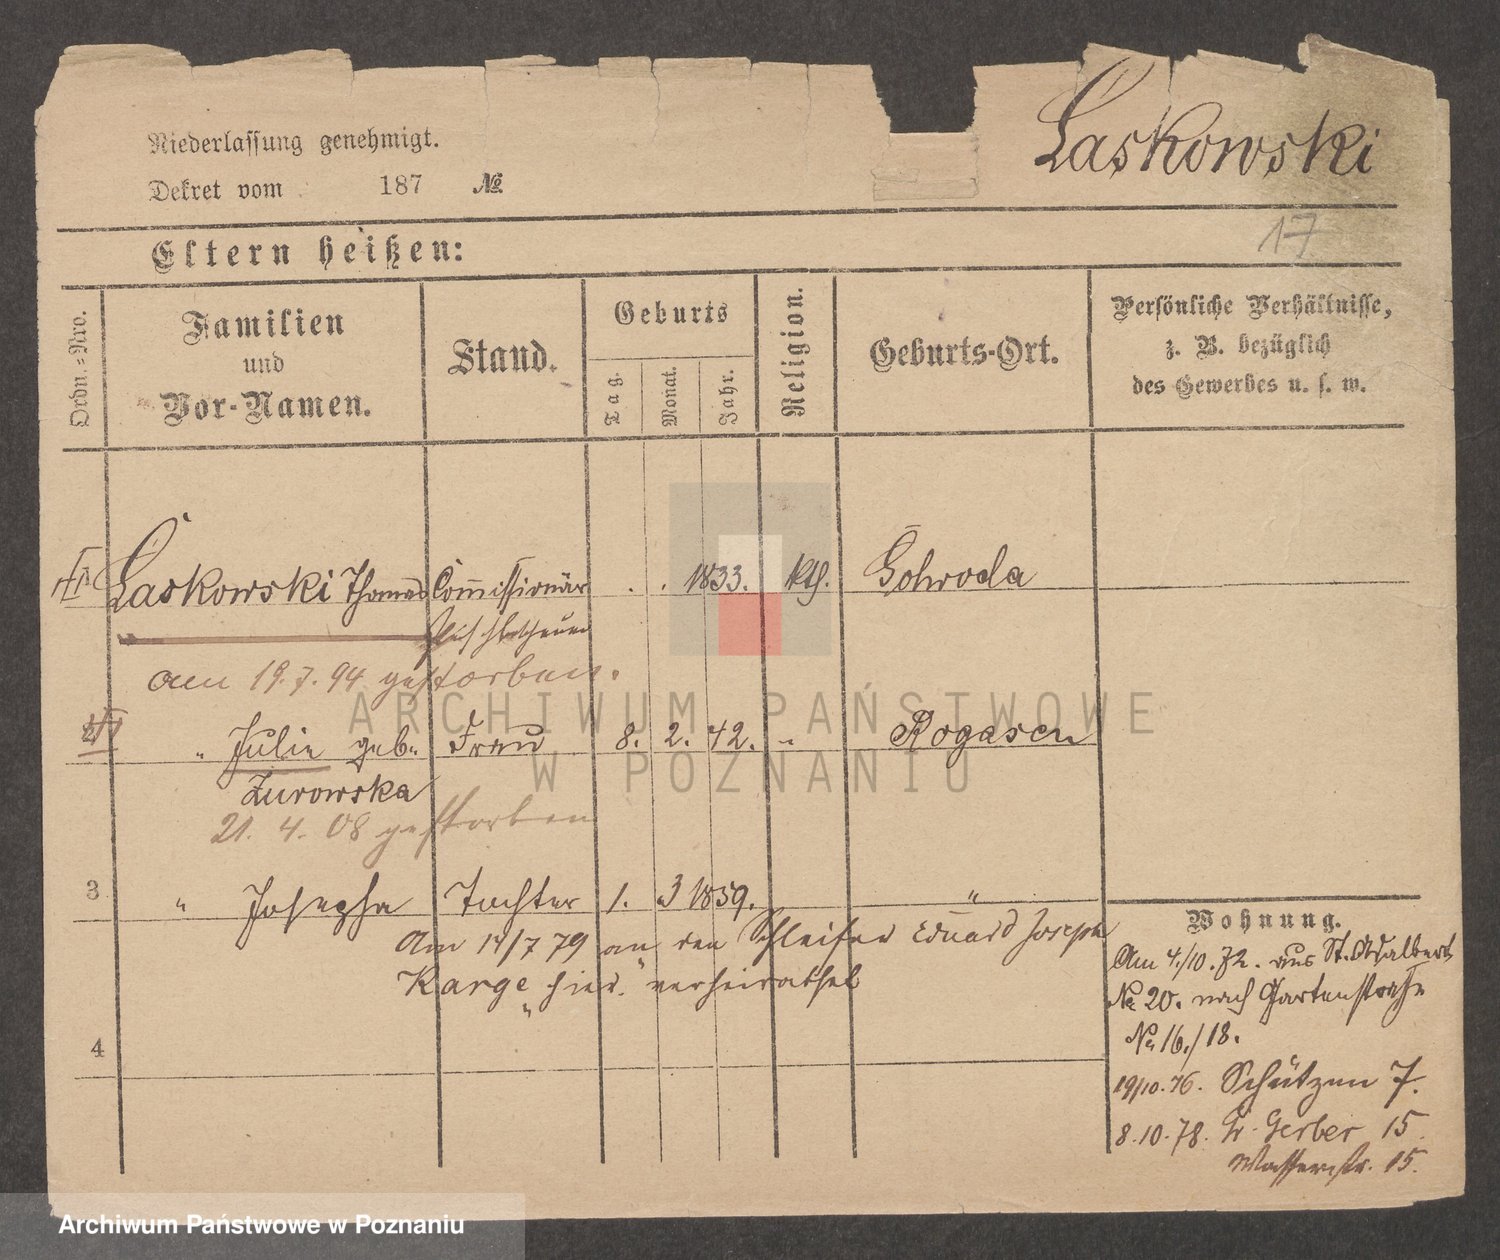 Niederlassung genehmigt.
Laskowski
Dekret vom 187 №
17
Eltern heißen:
Ordn.-Nro.
Familien
und
Vor-Namen.
Stand.
Geburts
Tag.
Monat.
Jahr.
Religion.
Geburts-Ort.
Persönliche Verhältnisse,
z. B. bezüglich
des Gewerbes u. s. w.
Laskowski Thomas Commissionär . . 1833. kth.
am 19.7.94 gestorben.
" Julie geb. Frau 8. 2. 42. " Rogasen
Zurowska
21. 4. 08 gestorben
3 " Josepha Tochter 1. 3 1859. "
Am 14/7 79 an den Schleifer Eduard Joseph
Karge hier verheirathet
4
Wohnung.
Am 4./10.72. aus St. Adalbert
№ 20. nach Gartenstraße
№ 16./18.
19/10.76. Schützen 7.
8.10.78. Gr. Gerber 15.
Wasserstr. 15.
ARCHIWUM PAŃSTWOWE
W POZNANIU
Archiwum Państwowe w Poznaniu